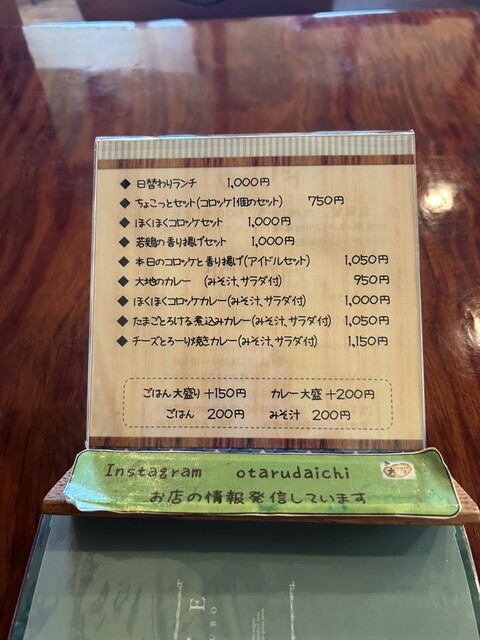 ◆ 日替わりランチ 1,000円
◆ ちょこっとセット(コロッケ1個のセット) 750円
◆ ほくほくコロッケセット 1,000円
◆ 若鶏の香り揚げセット 1,000円
◆ 本日のコロッケと香り揚げ(アイドルセット) 1,050円
◆ 大地のカレー (みそ汁、サラダ付) 950円
◆ ほくほくコロッケカレー(みそ汁、サラダ付) 1,000円
◆ たまごとろける煮込みカレー(みそ汁、サラダ付) 1,050円
◆ チーズとろーり焼きカレー(みそ汁、サラダ付) 1,150円
ごはん大盛り+150円 カレー大盛+200円
ごはん 200円 みそ汁 200円
Instagram otarudaichi
お店の情報発信しています